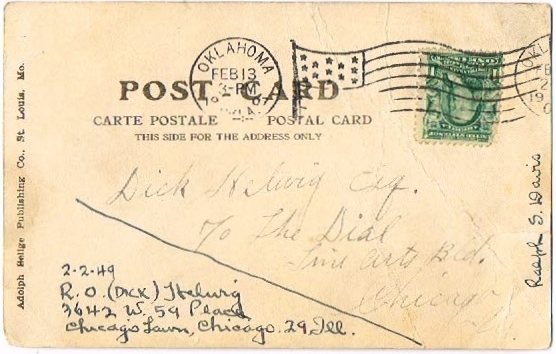 OKLAHOMA
FEB 13
3-PM
POST CARD
CARTE POSTALE POSTAL CARD
THIS SIDE FOR THE ADDRESS ONLY
Adolph Selige Publishing Co., St. Louis, Mo.
Dick Helwig Esq.
To The Dial
Fine Arts Bld.
Chicago
2-2-49
R. O. (DICK) Helwig
3642 W. 59 Place
Chicago Lawn, Chicago. 29, Ill.
Ralph S. Davis